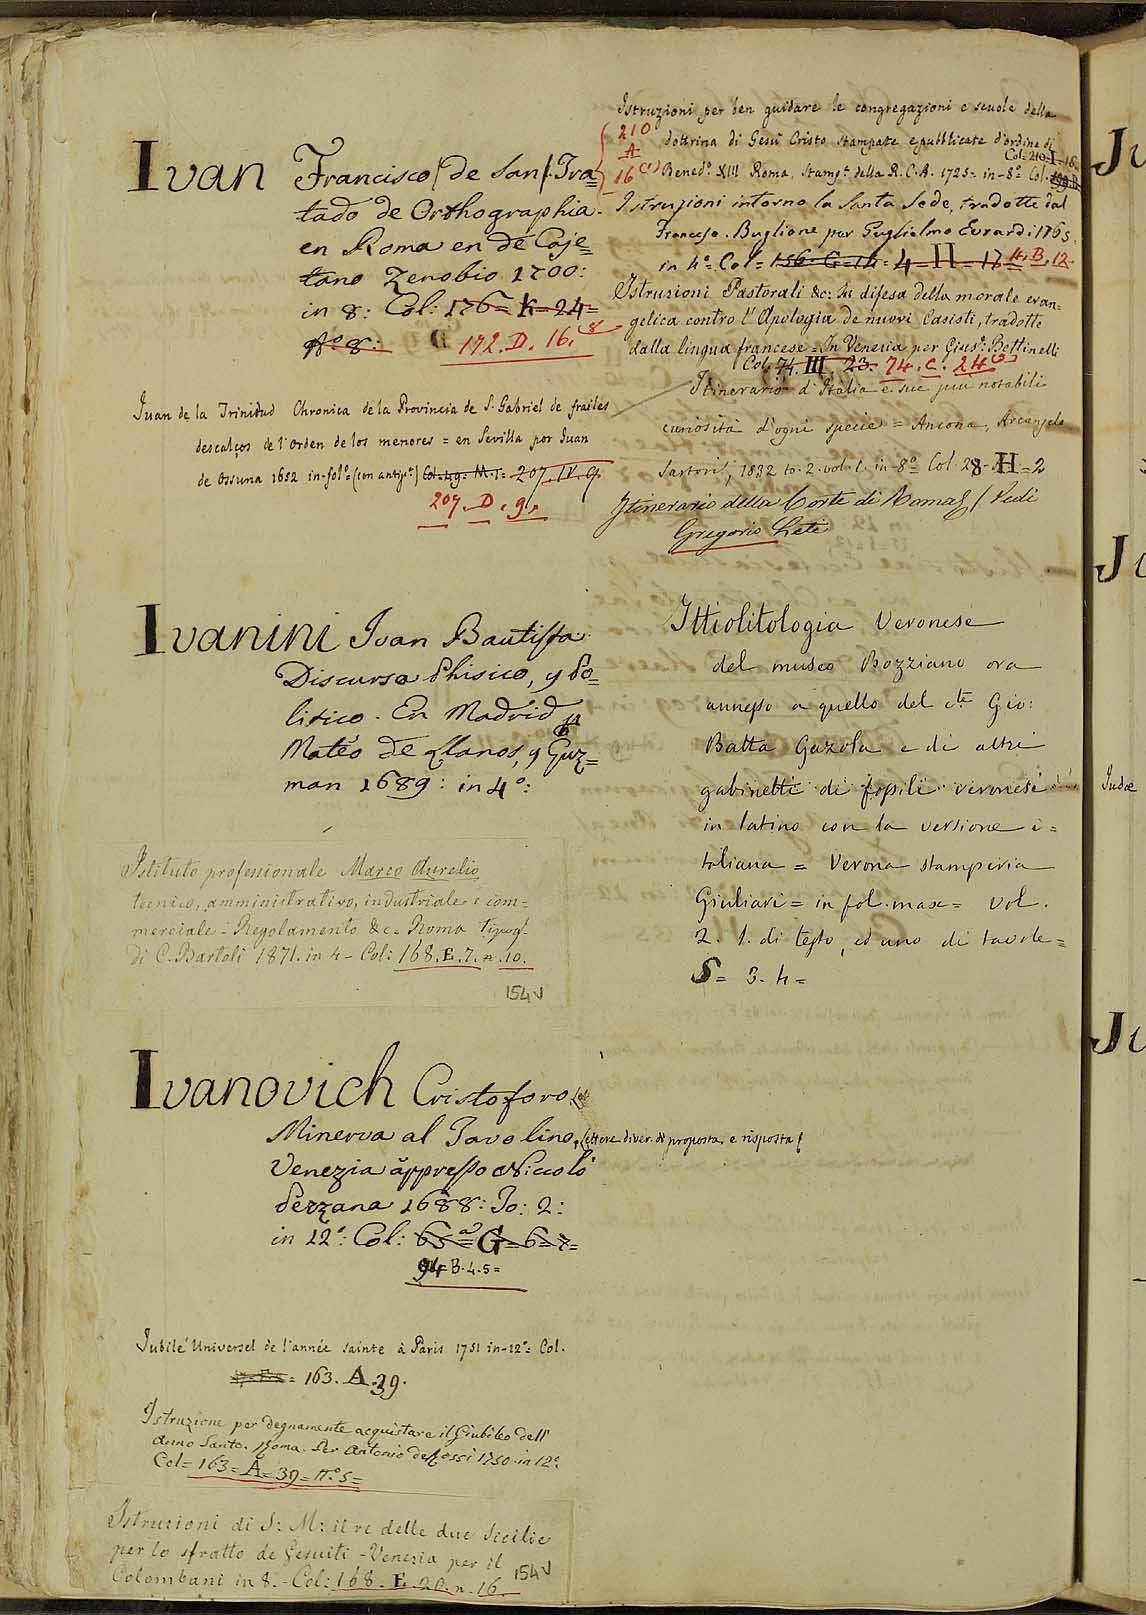 Ivan Francisco (de San). Tra=
tado de Orthographia.
en Roma en de Caje=
tano Zenobio 1700:
in 8: Col: 176= K=24=
Nº 8:
172. D. 16. 8
Juan de la Trinidad Chronica de la Provincia de S. Gabriel de frailes
descalços de l'Orden de los menores = en Sevilla por Juan
de Ossuna 1652 in-folº= (con antipº) Col=49= M.1= 207. IV. 9.
207. D. 9.
Ivanini Ivan Bautista
Discurso Phisico, y Po=
litico. En Madrid
Mateo de Llanos, y Guz=
man 1689: in 4º:
Istituto professionale Marco Aurelio
tecnico, amministrativo, industriale e com=
merciale - Regolamento &c. Roma tipogr.
di C. Bartoli 1871. in 4 - Col: 168. E. 7. n. 10.
154 v
Ivanovich Cristoforo
Minerva al Tavolino, Lettere diver. di proposta, e risposta
Venezia appresso Niccolò
Pezzana 1688: To: 2:
in 12º: Col: 65= G=6=7=
94= B. 4. 5=
Jubilé Universel de l'année sainte à Paris 1751 in-12º= Col.
= 163. A. 39.
Istruzione per degnamente acquistare il Giubileo dell'
Anno Santo. Roma. Per Antonio de Rossi 1750. in 12º:
Col= 163= A= 39= nº 5=
Istruzioni di S: M: il re delle due Sicilie
per lo sfratto de Gesuiti - Venezia per il
Colombani in 8. - Col: 168. E. 20. n. 16.
154 v
Istruzioni per ben guidare le congregazioni e scuole della
dottrina di Gesù Cristo stampate e pubblicate d'ordine di
Col: 210=I=16
Bened.º XIII Roma, Stamp.ª della R. C. A. 1725= in-8º Col.
210
A
16 (1)
Istruzioni intorno la Santa Sede, tradotte dal
Francese. Buglione per Guglielmo Evrardi: 1765
in 4º= Col= 156= G=14= 4=II=17 4. B. 12.
Istruzioni Pastorali &c: In difesa della morale evan=
gelica contro l'Apologia de nuovi Casisti, tradotte
dalla lingua francese = In Venezia per Gius: Bettinelli
Col. 74. III. 23. 74. C. 24
Itinerario d'Italia e sue più notabili
curiosità d'ogni specie = Ancona, Arcangelo
Sartori, 1832 to. 2. vol. 1. in-8º Col. 28-H=2
Itinerario della Corte di Roma / Vedi
Gregorio Leti
Ittiolitologia Veronese
del museo Bozziano ora
annesso a quello del Cte Gio:
Batta Gazola e di altri
gabinetti di fossili veronesi
in latino con la versione i=
taliana = Verona stamperia
Giuliari = in fol. mass= vol.
2. 1. di testo, ed uno di tavole=
S= 3. 4=
Judæ